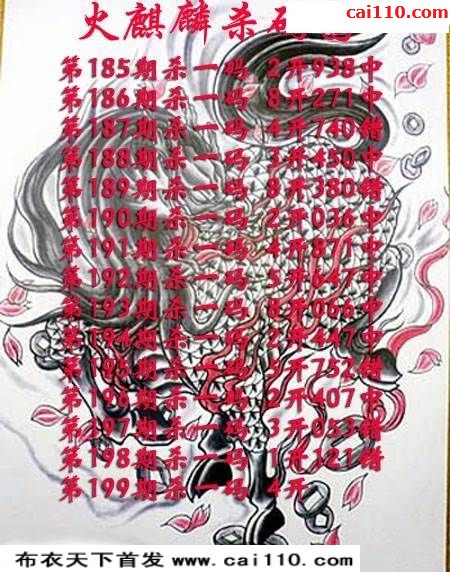 cai110.com
火麒麟杀码
第185期杀一码 2开938中
第186期杀一码 8开271中
第187期杀一码 4开740错
第188期杀一码 3开450中
第189期杀一码 8开380错
第190期杀一码 2开036中
第191期杀一码 4开871中
第192期杀一码 5开647中
第193期杀一码 8开066中
第194期杀一码 2开447中
第195期杀一码 5开752错
第196期杀一码 2开407中
第197期杀一码 3开053错
第198期杀一码 1开121错
第199期杀一码 4开
布衣天下首发 www.cai110.com